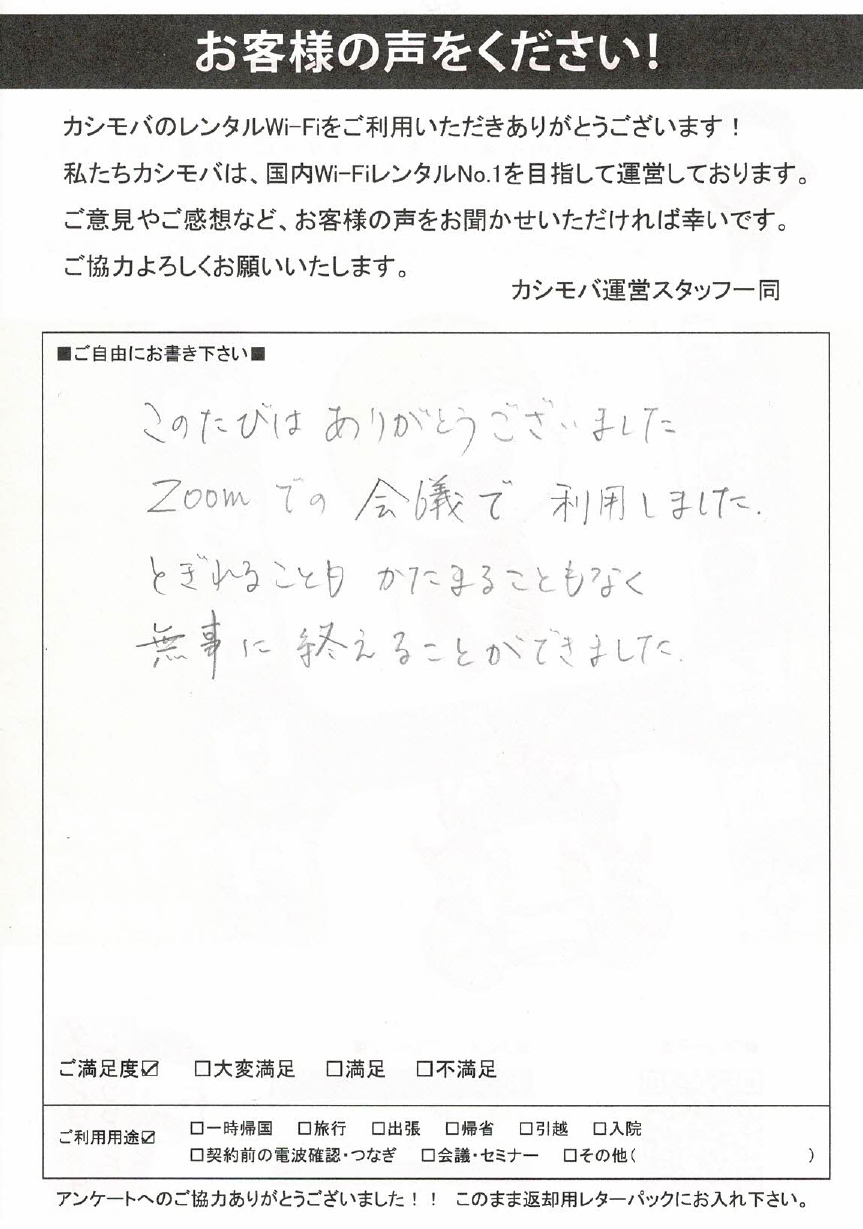 お客様の声をください!
カシモバのレンタルWi-Fiをご利用いただきありがとうございます!
私たちカシモバは、国内Wi-FiレンタルNo.1を目指して運営しております。
ご意見やご感想など、お客様の声をお聞かせいただければ幸いです。
ご協力よろしくお願いいたします。
カシモバ運営スタッフ一同
■ご自由にお書き下さい■
このたびは ありがとうございました
Zoomでの 会議で 利用しました.
とぎれることも かたまることもなく
無事に 終えることができました.
ご満足度☑ □大変満足 □満足 □不満足
ご利用用途☑ □一時帰国 □旅行 □出張 □帰省 □引越 □入院
□契約前の電波確認・つなぎ □会議・セミナー □その他( )
アンケートへのご協力ありがとうございました!! このまま返却用レターパックにお入れ下さい。